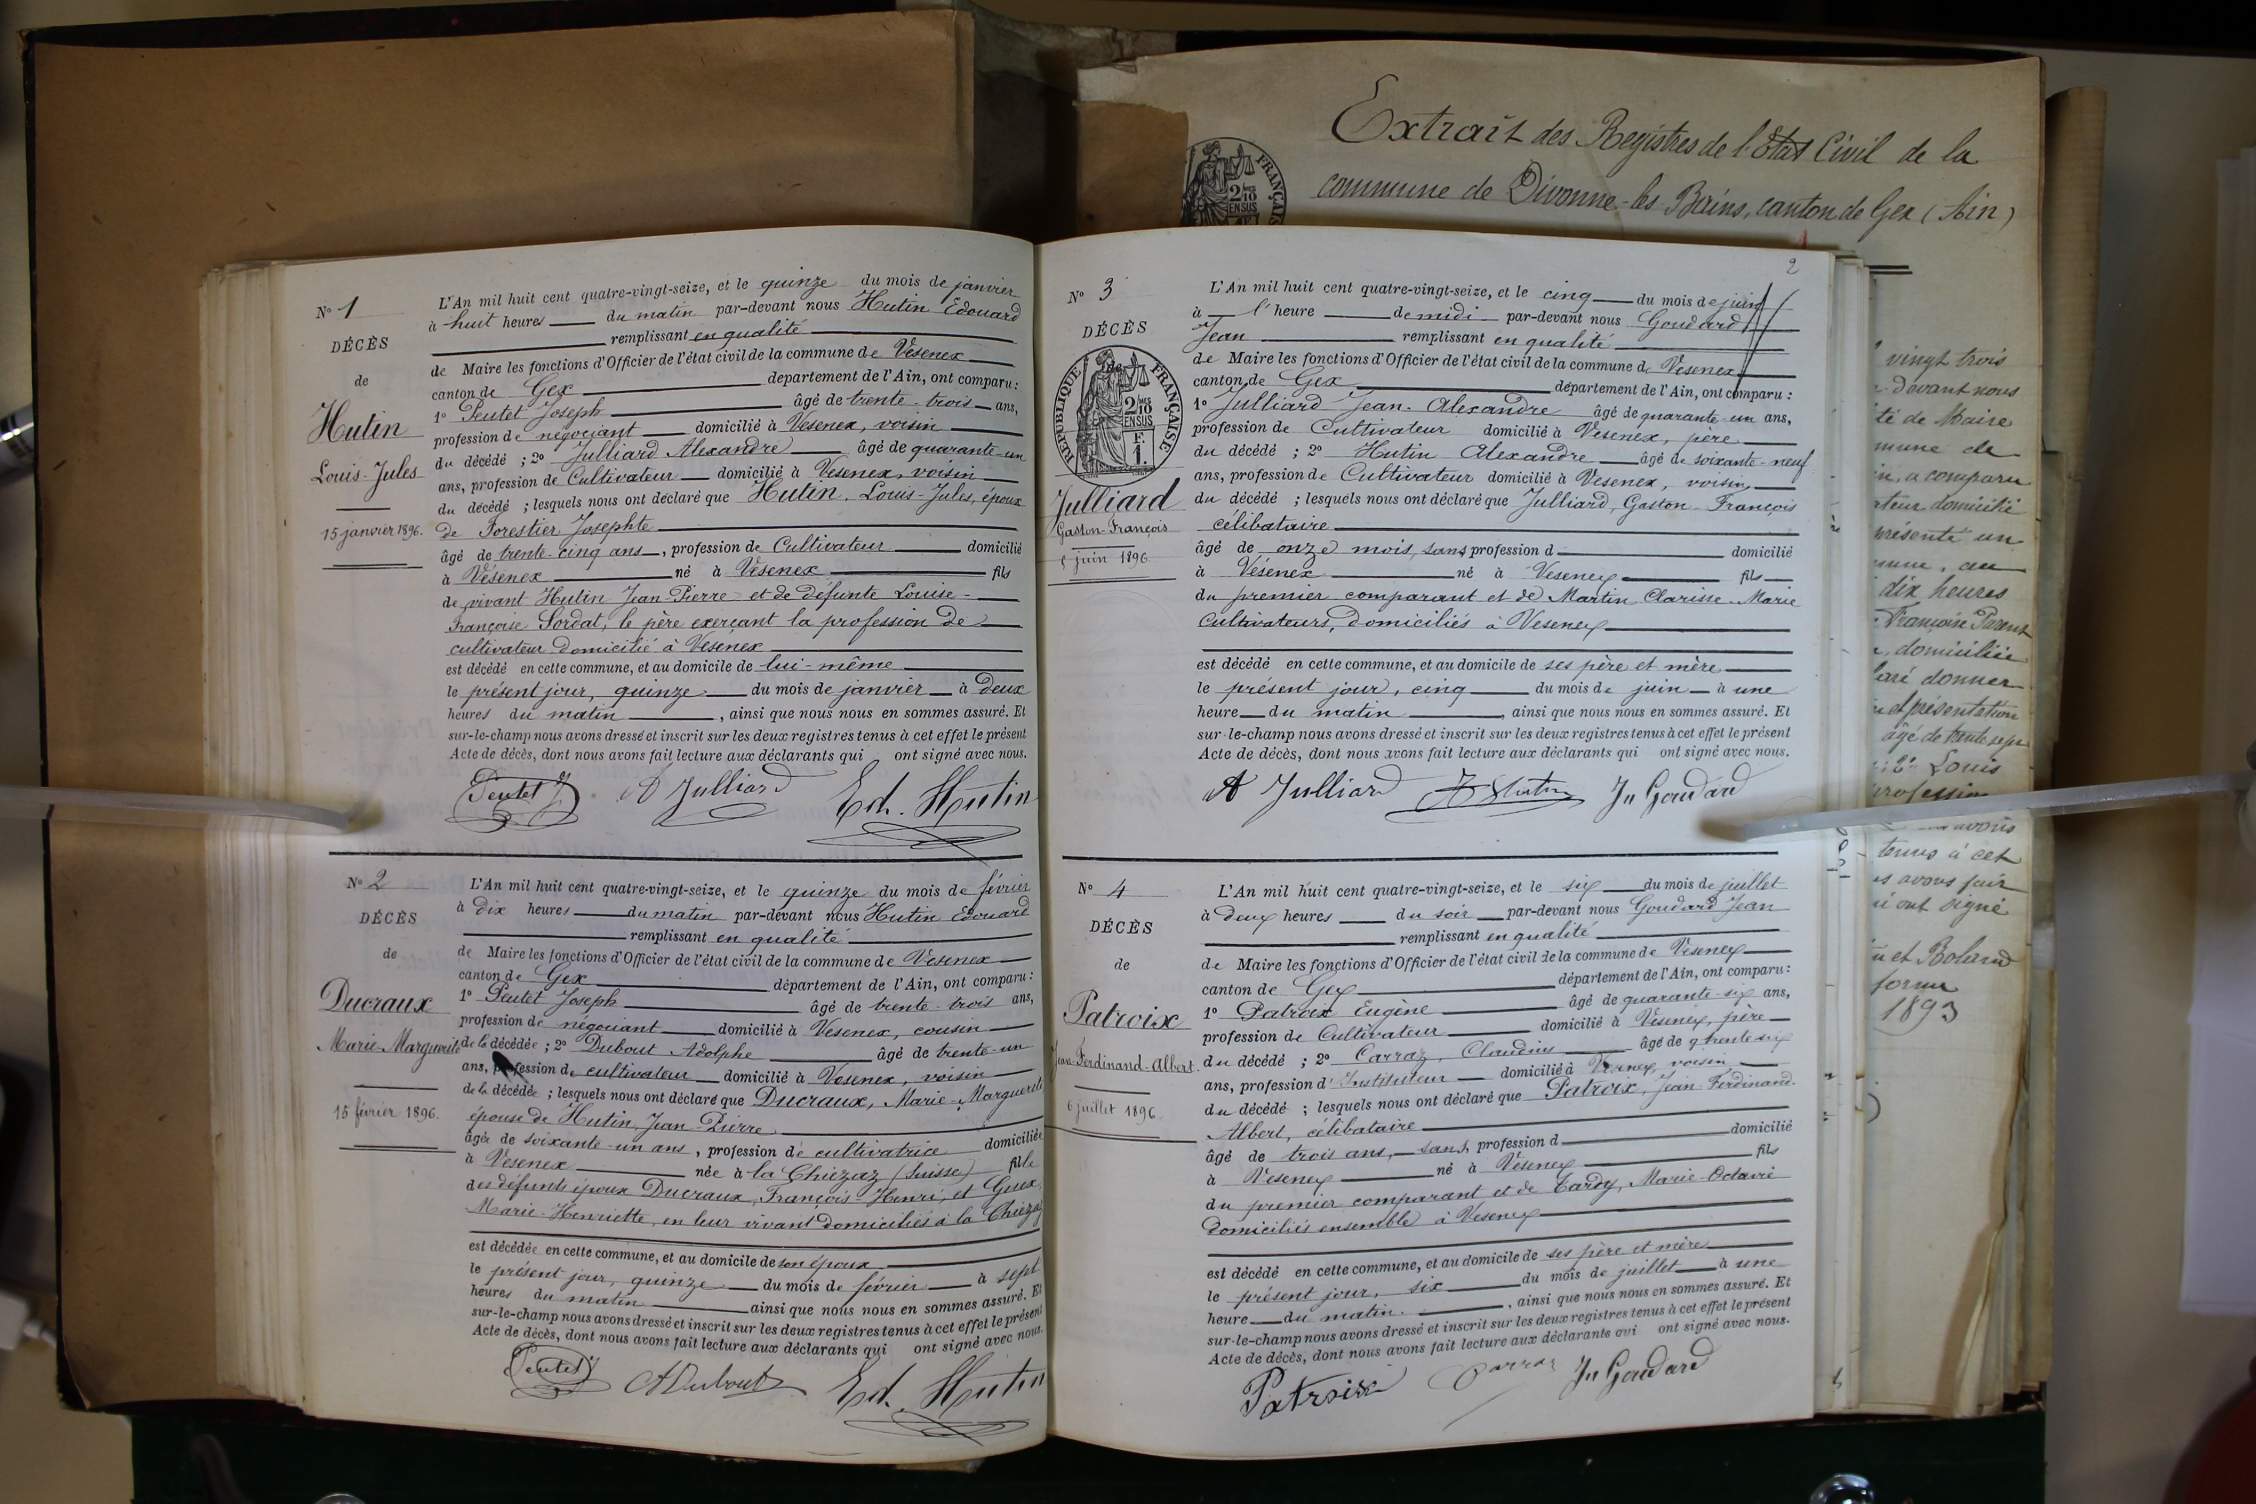 Extrait des Registres de l'Etat Civil de la
commune de Divonne-les-Bains, canton de Gex (Ain)
N° 1
DÉCÈS
de
Hutin
Louis-Jules
15 janvier 1896.
L'An mil huit cent quatre-vingt-seize, et le quinze du mois de janvier
à huit heures du matin par-devant nous Hutin Edouard
remplissant en qualité
de Maire les fonctions d'Officier de l'état civil de la commune de Vesenex
canton de Gex département de l'Ain, ont comparu :
1° Peutet Joseph âgé de trente-trois ans,
profession de négociant domicilié à Vesenex, voisin
du décédé ; 2° Julliard Alexandre âgé de quarante-un
ans, profession de Cultivateur domicilié à Vesenex, voisin
du décédé ; lesquels nous ont déclaré que Hutin, Louis-Jules, époux
de Forestier Josephte
âgé de trente-cinq ans, profession de Cultivateur domicilié
à Vésenex né à Vesenex fils
de vivant Hutin Jean-Pierre et de défunte Louise-
Françoise Sordat, le père exerçant la profession de
cultivateur domicilié à Vesenex
est décédé en cette commune, et au domicile de lui-même
le présent jour, quinze du mois de janvier à deux
heures du matin, ainsi que nous nous en sommes assuré. Et
sur-le-champ nous avons dressé et inscrit sur les deux registres tenus à cet effet le présent
Acte de décès, dont nous avons fait lecture aux déclarants qui ont signé avec nous.
Peutet J A Julliard Ed. Hutin
N° 2
DÉCÈS
de
Ducraux
Marie-Marguerite
15 février 1896.
L'An mil huit cent quatre-vingt-seize, et le quinze du mois de février
à dix heures du matin par-devant nous Hutin Edouard
remplissant en qualité
de Maire les fonctions d'Officier de l'état civil de la commune de Vesenex
canton de Gex département de l'Ain, ont comparu :
1° Peutet Joseph âgé de trente-trois ans,
profession de négociant domicilié à Vesenex, cousin
de la décédée ; 2° Dubout Adolphe âgé de trente-un
ans, profession de cultivateur domicilié à Vesenex, voisin
de la décédée ; lesquels nous ont déclaré que Ducraux, Marie-Marguerite
épouse de Hutin Jean-Pierre
âgée de soixante-un ans, profession de cultivatrice domiciliée
à Vesenex née à la Chiézaz (Suisse) fille
des défunts époux Ducraux, François-Henri, et Genex,
Marie-Henriette, en leur vivant domiciliés à la Chiézaz
est décédée en cette commune, et au domicile de son époux
le présent jour, quinze du mois de février à sept
heures du matin ainsi que nous nous en sommes assuré. Et
sur-le-champ nous avons dressé et inscrit sur les deux registres tenus à cet effet le présent
Acte de décès, dont nous avons fait lecture aux déclarants qui ont signé avec nous.
Peutet J A Dubout Ed. Hutin
2
N° 3
DÉCÈS
de
RÉPUBLIQUE FRANÇAISE
2/10 EN SUS
F. 1.
Julliard
Gaston-François
5 juin 1896
L'An mil huit cent quatre-vingt-seize, et le cinq du mois de juin
à l'heure de midi par-devant nous Goudard
Jean remplissant en qualité
de Maire les fonctions d'Officier de l'état civil de la commune de Vesenex
canton de Gex département de l'Ain, ont comparu :
1° Julliard Jean-Alexandre âgé de quarante-un ans,
profession de Cultivateur domicilié à Vesenex, père
du décédé ; 2° Hutin Alexandre âgé de soixante-neuf
ans, profession de Cultivateur domicilié à Vesenex, voisin
du décédé ; lesquels nous ont déclaré que Julliard, Gaston-François
célibataire
âgé de onze mois, sans profession d domicilié
à Vésenex né à Vesenex fils
du premier comparant et de Martin Clarisse-Marie
Cultivateurs, domiciliés à Vesenex
est décédé en cette commune, et au domicile de ses père et mère
le présent jour, cinq du mois de juin à une
heure du matin, ainsi que nous nous en sommes assuré. Et
sur-le-champ nous avons dressé et inscrit sur les deux registres tenus à cet effet le présent
Acte de décès, dont nous avons fait lecture aux déclarants qui ont signé avec nous.
A Julliard A Hutin Jn Goudard
N° 4
DÉCÈS
de
Patroix
Jean-Ferdinand-Albert.
6 juillet 1896
L'An mil huit cent quatre-vingt-seize, et le six du mois de juillet
à deux heures du soir par-devant nous Goudard Jean
remplissant en qualité
de Maire les fonctions d'Officier de l'état civil de la commune de Vesenex
canton de Gex département de l'Ain, ont comparu :
1° Patroix Eugène âgé de quarante-six ans,
profession de Cultivateur domicilié à Vesenex, père
du décédé ; 2° Carraz, Claudius âgé de trente six
ans, profession d'Instituteur domicilié à voisin
du décédé ; lesquels nous ont déclaré que Patroix, Jean-Ferdinand-
Albert, célibataire
âgé de trois ans, sans profession d domicilié
à Vesenex né à Vésenex fils
du premier comparant et de Tardy, Marie-Octavie
domiciliés ensemble à Vesenex
est décédé en cette commune, et au domicile de ses père et mère
le présent jour, six du mois de juillet à une
heure du matin, ainsi que nous nous en sommes assuré. Et
sur-le-champ nous avons dressé et inscrit sur les deux registres tenus à cet effet le présent
Acte de décès, dont nous avons fait lecture aux déclarants qui ont signé avec nous.
Patroix Carraz Jn Goudard
vingt trois
devant nous
té de Maire
mune de
a comparu
domicilié
présenté un
au
dix heures
Françoise Parent
domiciliée
laré donner
et présentation
âgé de trente sept
2° Louis
profession
avons
tenus à cet
avons fait
ont signé
et Boland
forme
1893